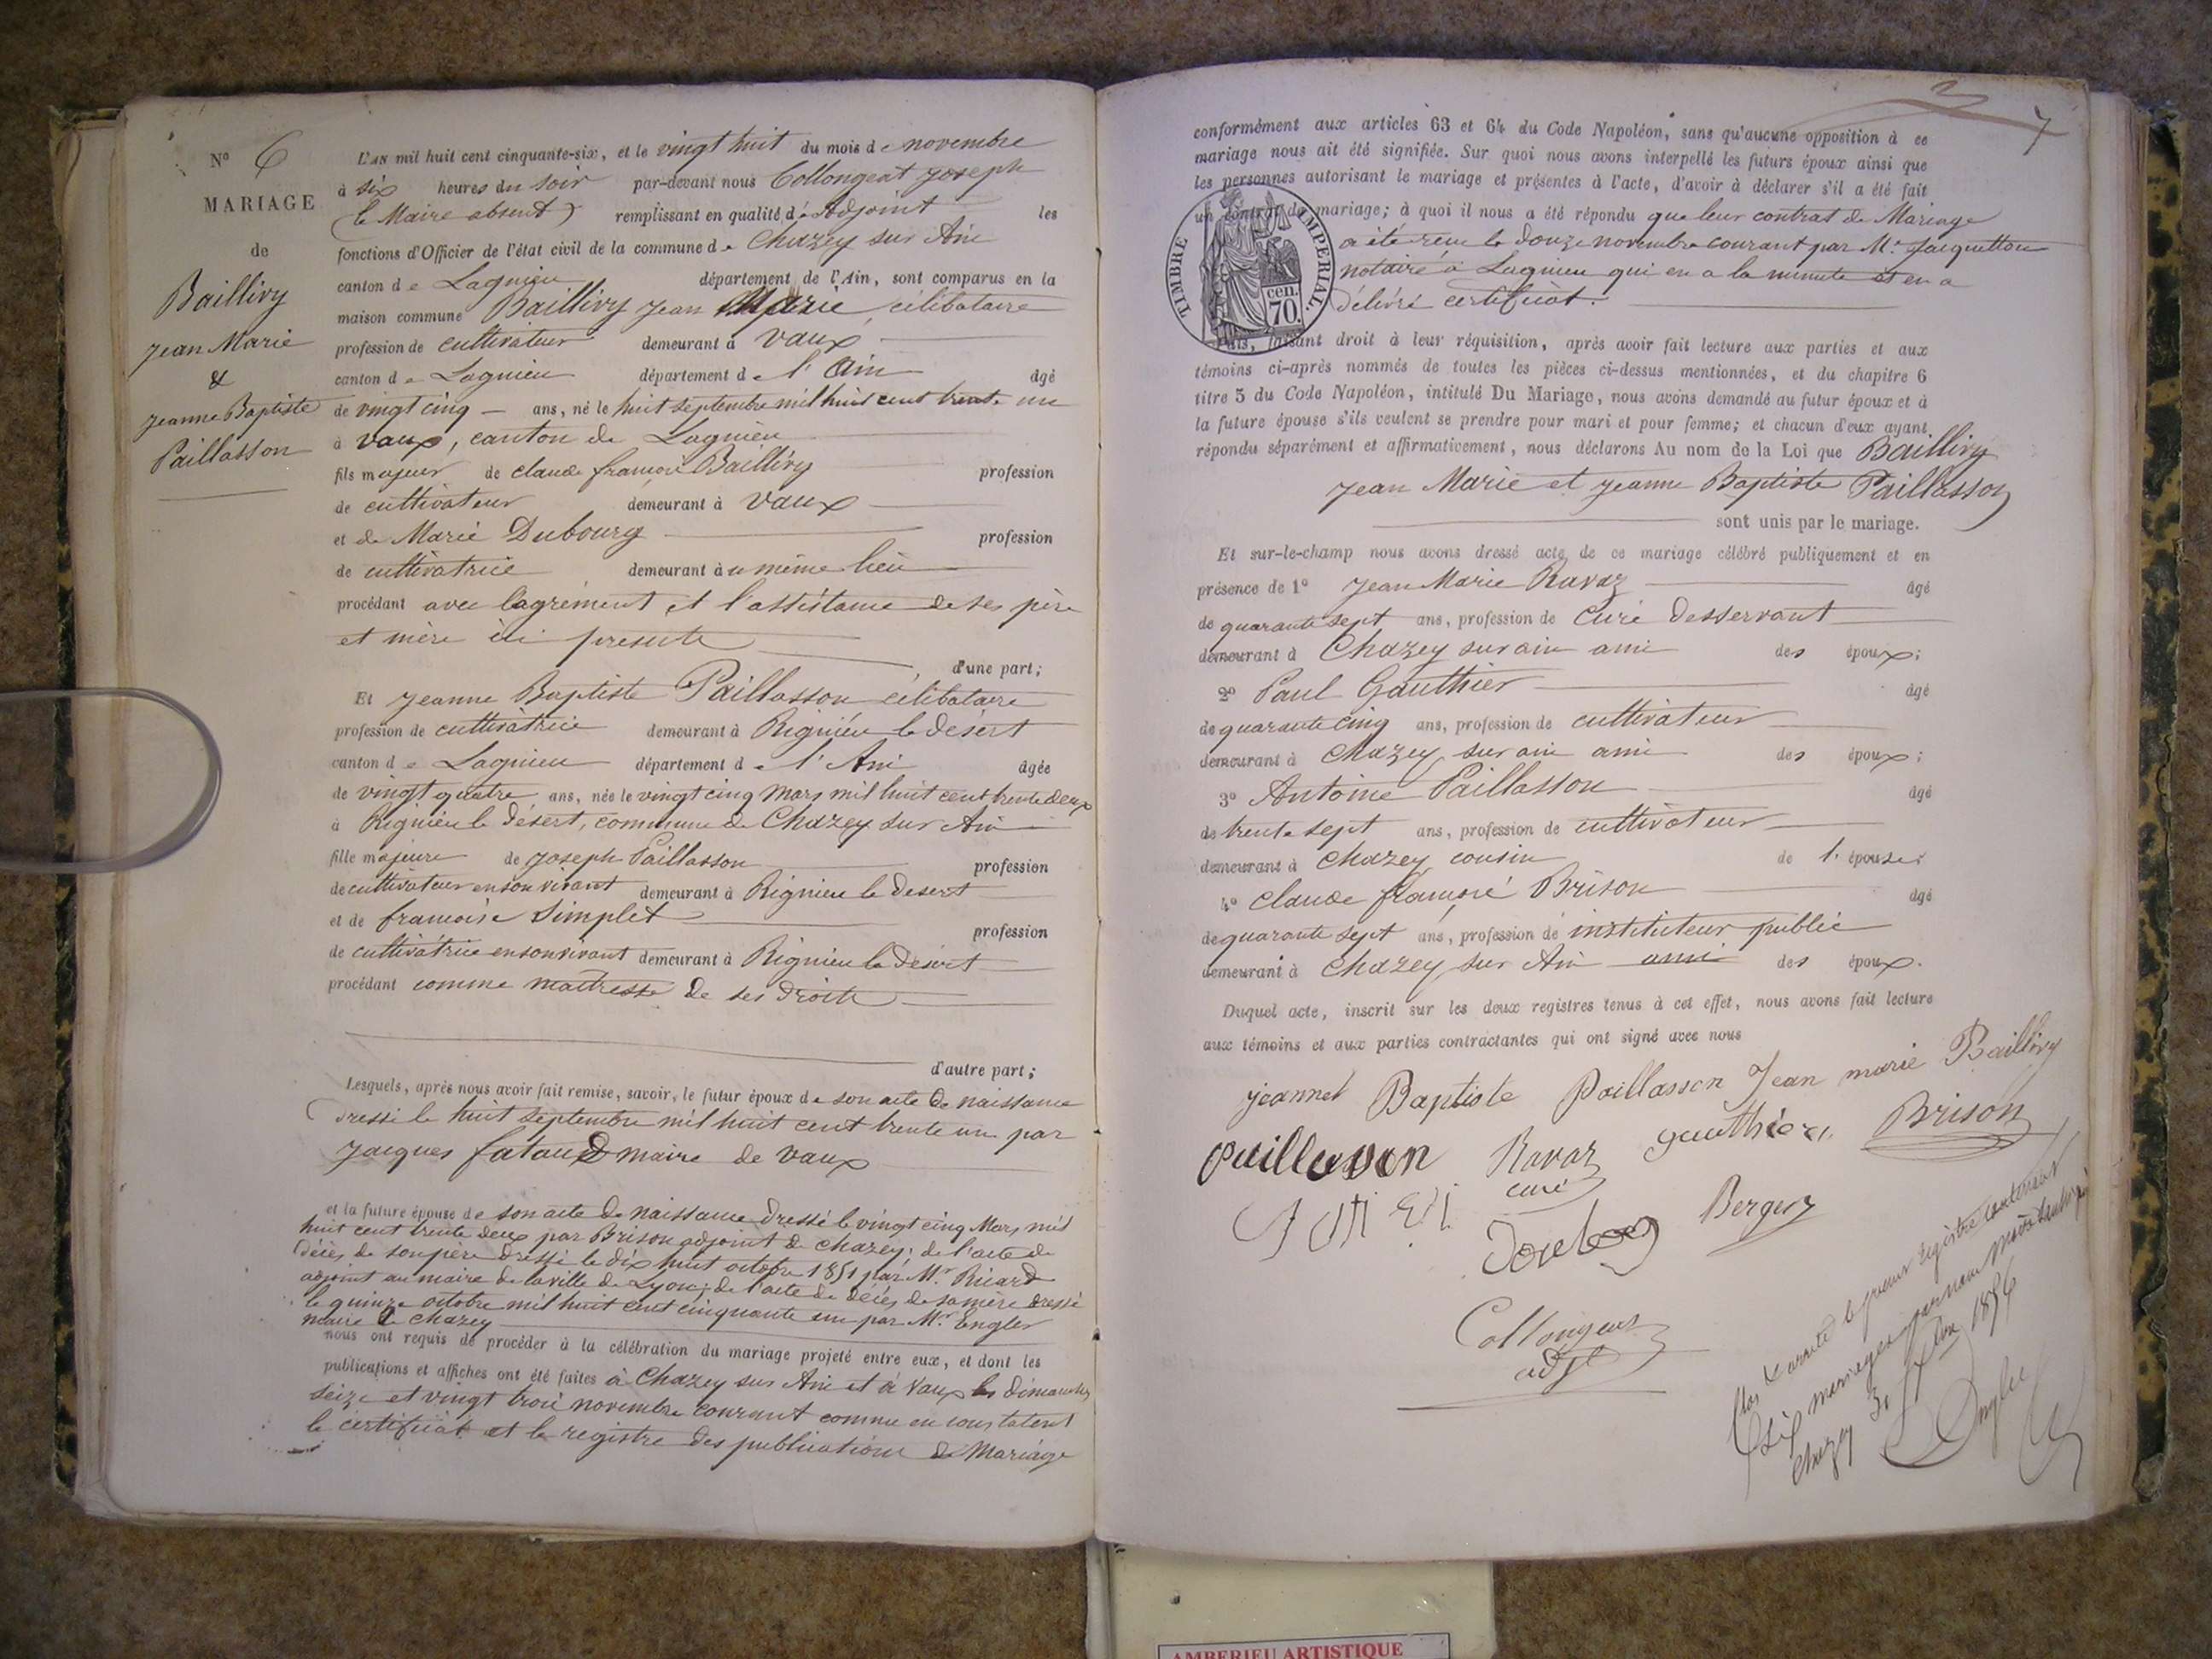 N° 6
MARIAGE
de
Baillivy
Jean Marie
&
Jeanne Baptiste
Paillasson
L'AN mil huit cent cinquante-six, et le vingt huit du mois de novembre
à six heures du soir par-devant nous Collongeat Joseph
(le Maire absent) remplissant en qualité d'adjoint les
fonctions d'Officier de l'état civil de la commune de Chazey sur Ain
canton de Lagnieu département de l'Ain, sont comparus en la
maison commune Baillivy Jean Marie, célibataire
profession de cultivateur demeurant à Vaux
canton de Lagnieu département de l'Ain âgé
de vingt cinq ans, né le huit septembre mil huit cent trente un
à Vaux, canton de Lagnieu
fils majeur de claude françois Baillivy profession
de cultivateur demeurant à Vaux
et de Marie Dubourg profession
de cultivatrice demeurant au même lieu
procédant avec l'agrément et l'assistance de ses père
et mère ici présents
d'une part;
Et Jeanne Baptiste Paillasson célibataire
profession de cultivatrice demeurant à Rignieu le désert
canton de Lagnieu département de l'Ain âgée
de vingt quatre ans, née le vingt cinq Mars mil huit cent trente deux
à Rignieu le désert, commune de Chazey sur Ain
fille majeure de Joseph Paillasson profession
de cultivateur en son vivant demeurant à Rignieu le desert
et de francoise Simplet profession
de cultivatrice en son vivant demeurant à Rignieu le désert
procédant comme maîtresse de ses droits
d'autre part;
Lesquels, après nous avoir fait remise, savoir, le futur époux de son acte de naissance
dressé le huit septembre mil huit cent trente un par
Jacques fataud maire de Vaux
et la future épouse de son acte de naissance dressé le vingt cinq Mars mil
huit cent trente deux par Brison adjoint de Chazey; de l'acte de
décès de son père dressé le dix huit octobre 1851 par Mr Ricard
adjoint au maire de la ville de Lyon; de l'acte de décès de sa mère dressé
le quinze octobre mil huit cent cinquante un par Mr Engler
maire de Chazey
nous ont requis de procéder à la célébration du mariage projeté entre eux, et dont les
publications et affiches ont été faites à Chazey sur Ain et à Vaux les dimanches
seize et vingt trois novembre courant comme en constatent
le certificat et le registre des publications de Mariage
7
conformément aux articles 63 et 64 du Code Napoléon, sans qu'aucune opposition à ce
mariage nous ait été signifiée. Sur quoi nous avons interpellé les futurs époux ainsi que
les personnes autorisant le mariage et présentes à l'acte, d'avoir à déclarer s'il a été fait
un contrat de mariage; à quoi il nous a été répondu que leur contrat de Mariage
a été reçu le douze novembre courant par Mr Jacquetton
notaire à Lagnieu qui en a la minute et en a
délivré certificat.
TIMBRE IMPERIAL.
cen.
70.
Puis, faisant droit à leur réquisition, après avoir fait lecture aux parties et aux
témoins ci-après nommés de toutes les pièces ci-dessus mentionnées, et du chapitre 6
titre 5 du Code Napoléon, intitulé Du Mariage, nous avons demandé au futur époux et à
la future épouse s'ils veulent se prendre pour mari et pour femme; et chacun d'eux ayant
répondu séparément et affirmativement, nous déclarons Au nom de la Loi que Baillivy
Jean Marie et Jeanne Baptiste Paillasson
sont unis par le mariage.
Et sur-le-champ nous avons dressé acte de ce mariage célébré publiquement et en
présence de 1° Jean Marie Ravaz âgé
de quarante sept ans, profession de Curé desservant
demeurant à Chazey sur ain ami des époux;
2° Paul Gauthier âgé
de quarante cinq ans, profession de cultivateur
demeurant à Chazey sur ain ami des époux;
3° Antoine Paillasson âgé
de trente sept ans, profession de cultivateur
demeurant à Chazey, cousin de l'épouse;
4° Claude françois Brison âgé
de quarante sept ans, profession de instituteur public
demeurant à Chazey sur Ain ami des époux.
Duquel acte, inscrit sur les deux registres tenus à cet effet, nous avons fait lecture
aux témoins et aux parties contractantes qui ont signé avec nous
jeannet Baptiste Paillasson Jean marie Baillivy
paillasson Ravaz gauthier Brison
curé
Berger
Collongeat
adjt
Clos & arrêté le présent registre contenant
six mariages par nous Maire
Chazey 31 1856
Engler
AMBERIEU ARTISTIQUE